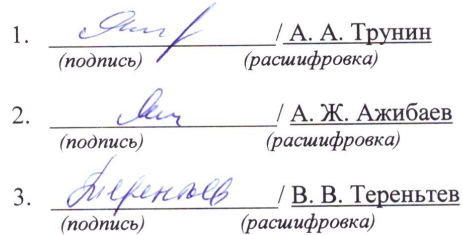 1. / А. А. Трунин
(подпись) (расшифровка)
2. / А. Ж. Ажибаев
(подпись) (расшифровка)
3. / В. В. Тереньтев
(подпись) (расшифровка)